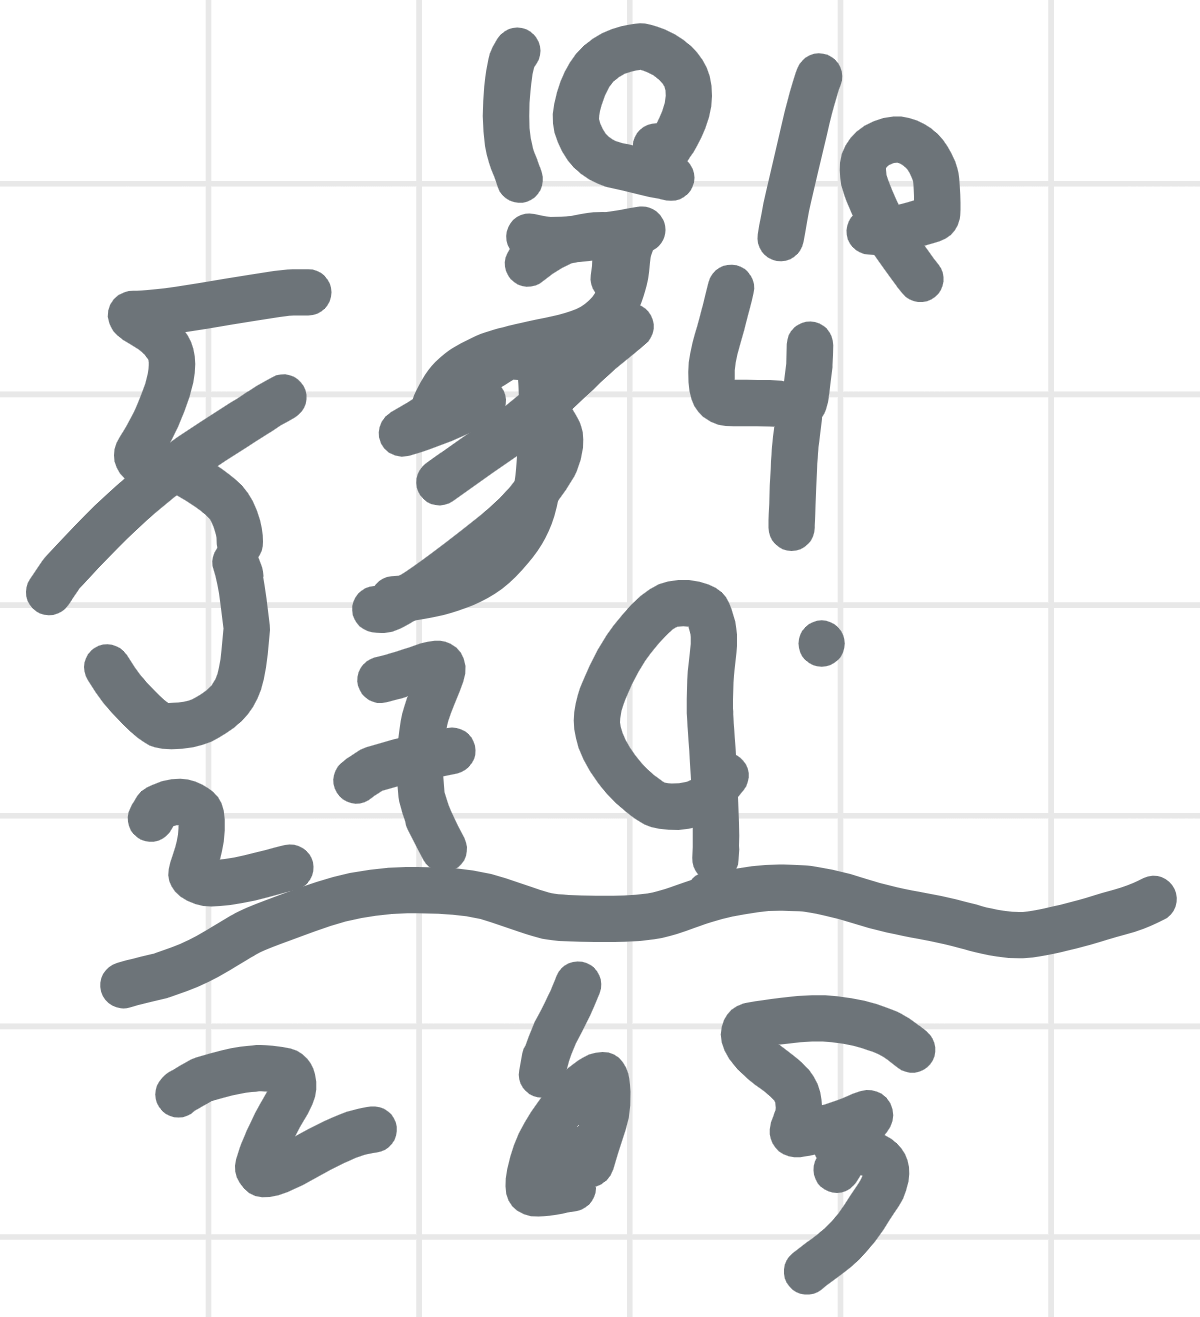 10 10
5 4
2 7 9
2 6 5